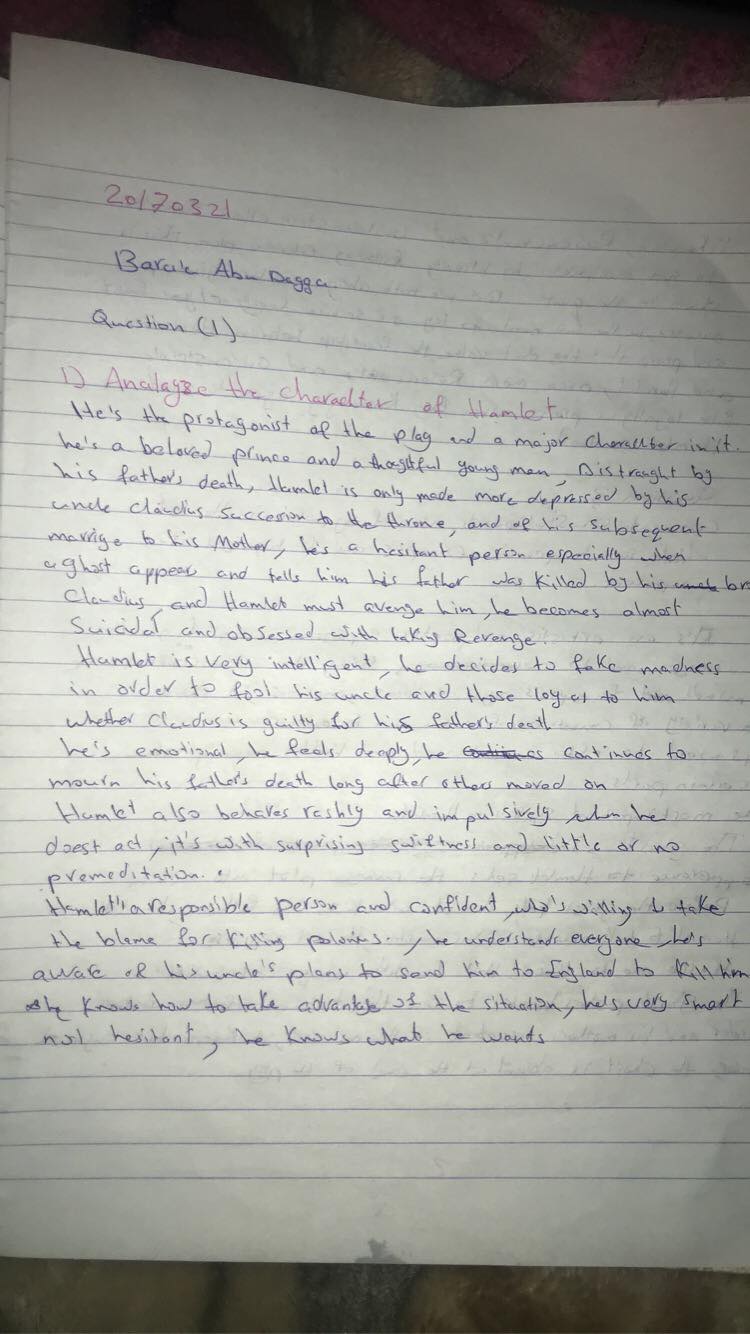 20170321
Barak Abu Dagga
Question (1)
1) Analayze the charactter of Hamlet.
He's the protagonist of the play and a major charactter in it.
he's a beloved prince and a thoghtful young man, Distraught by
his father's death, Hamlet is only made more depressed by his
uncle Claudius succession to the throne, and of his subsequent
marrige to his Mother, he's a hesitant person especially when
a ghost appear and tells him his father was killed by his uncle br
Claudius, and Hamlet must avenge him, he becomes almost
Suicidal and obsessed with taking Revenge.
Hamlet is very intelligent, he decides to fake madness
in order to fool his uncle and those loyal to him
whether Claudius is guilty for his father's death
he's emotional, he feels deeply, he continues to
mourn his father's death long after others moved on
Hamlet also behaves rashly and impulsively when he
doest act, it's with surprising swiftness and little or no
premeditation.
Hamlet's a responsible person and confident, who's willing to take
the blame for killing polonius., he understands everyone, he's
aware of his uncle's plans to send him to England to kill him
he knows how to take advantage of the situation, he's very smart
not hesitant, he knows what he wants